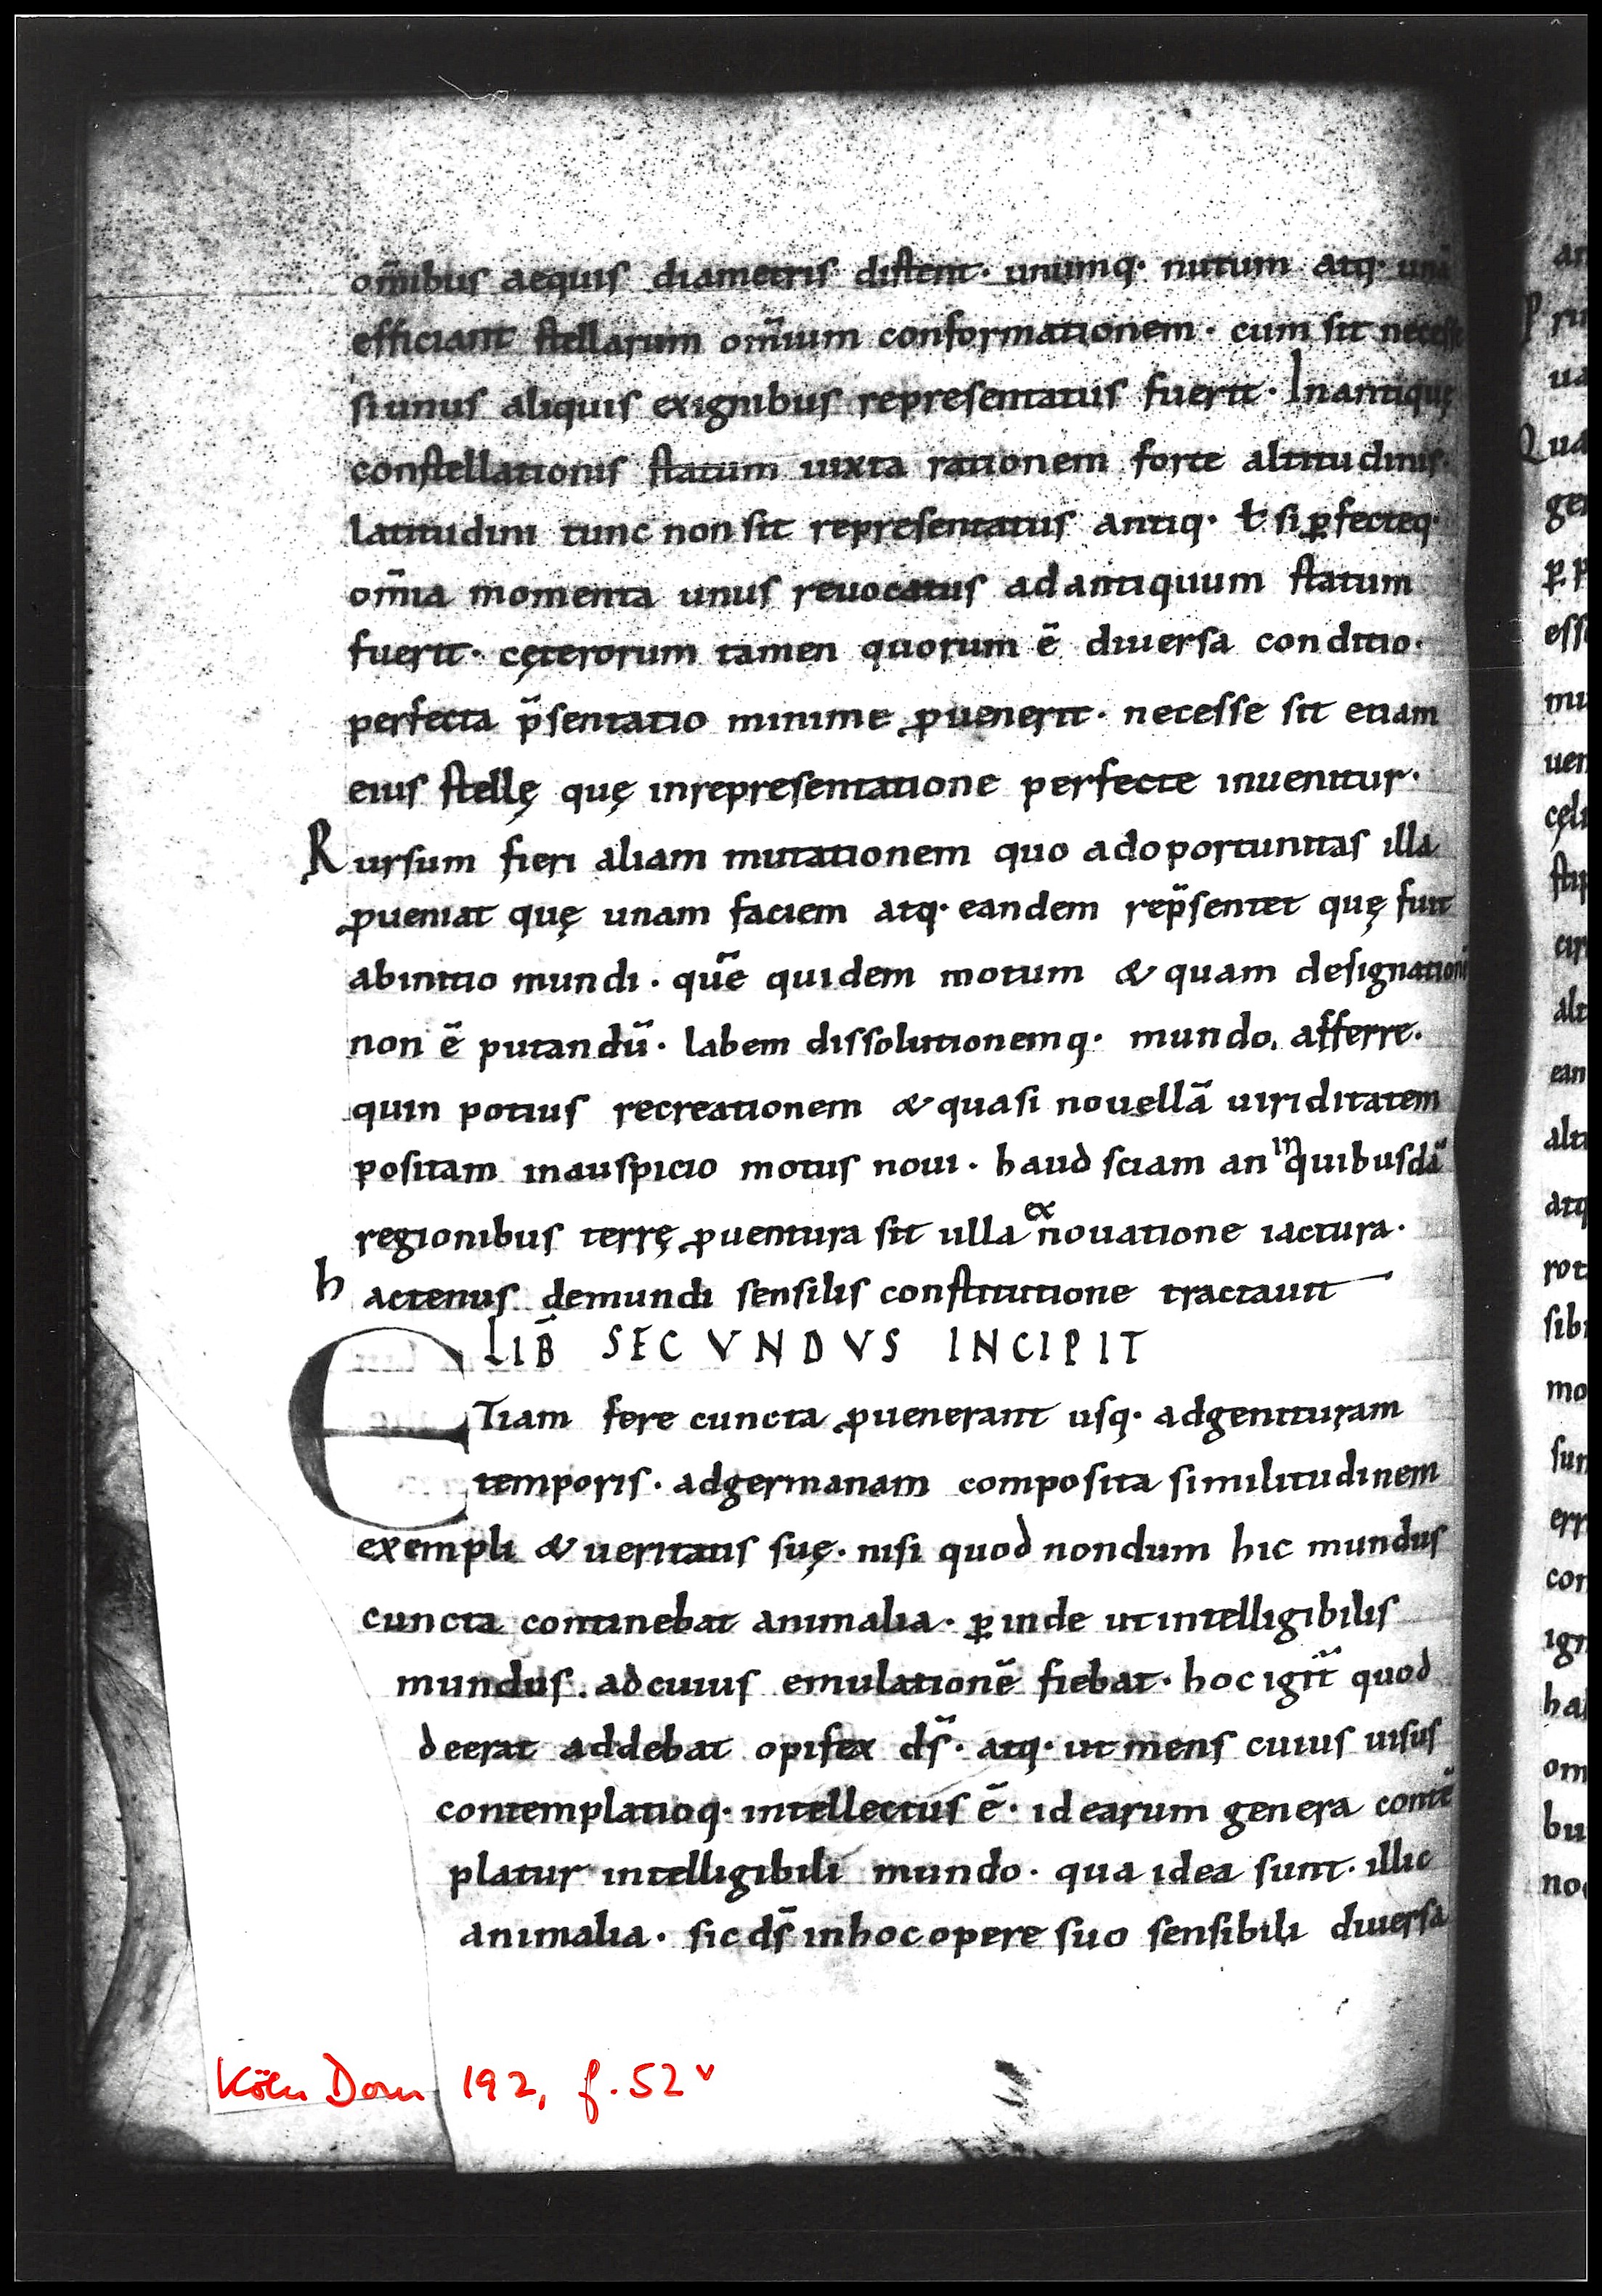 om̄ibus aequis diametris distent· unumq· nutum atq· unā
efficiant stellarum om̄ium conformationem· cum sit necesse
si unus aliquis ex ignibus representatus fuerit· In antiquę
constellationis statum iuxta rationem forte altitudinis·
latitudini tunc non sit representatus antiq· ł si ꝑfecteq·
om̄ia momenta unus reuocatus ad antiquum statum
fuerit· cęterorum tamen quorum ē diuersa conditio·
perfecta p̄sentatio minime ꝓuenerit· necesse sit etiam
eius stellę quę in representatione perfecte inuenitur·
Rursum fieri aliam mutationem quo ad oportunitas illa
ꝓueniat quę unam faciem atq· eandem rep̄sentet quę fuit
ab initio mundi· quē quidem motum & quam designationē
non ē putandū· labem dissolutionemq· mundo. afferre·
quin potius recreationem & quasi nouellā uiriditatem
positam in auspicio motus noui· haud sciam an in quibusdā
regionibus terrę ꝓuentura sit ulla ex nouatione iactura·
hactenus de mundi sensilis constitutione tractauit
LIB̄ SECVNDVS INCIPIT
ETiam fere cuncta ꝓuenerant usq· ad genituram
temporis· ad germanam composita similitudinem
exempli & ueritatis suę· nisi quod nondum hic mundus
cuncta continebat animalia· ꝑinde ut intelligibilis
mundus. ad cuius emulationē fiebat· hoc igit̄ quod
deerat addebat opifex ds̄· atq· ut mens cuius uisus
contemplatioq· intellectus ē· idearum genera contē
platur intelligibili mundo· qua idea sunt· illic
animalia· sic ds̄ in hoc opere suo sensibili diuersa
Köln Dom 192, f. 52v